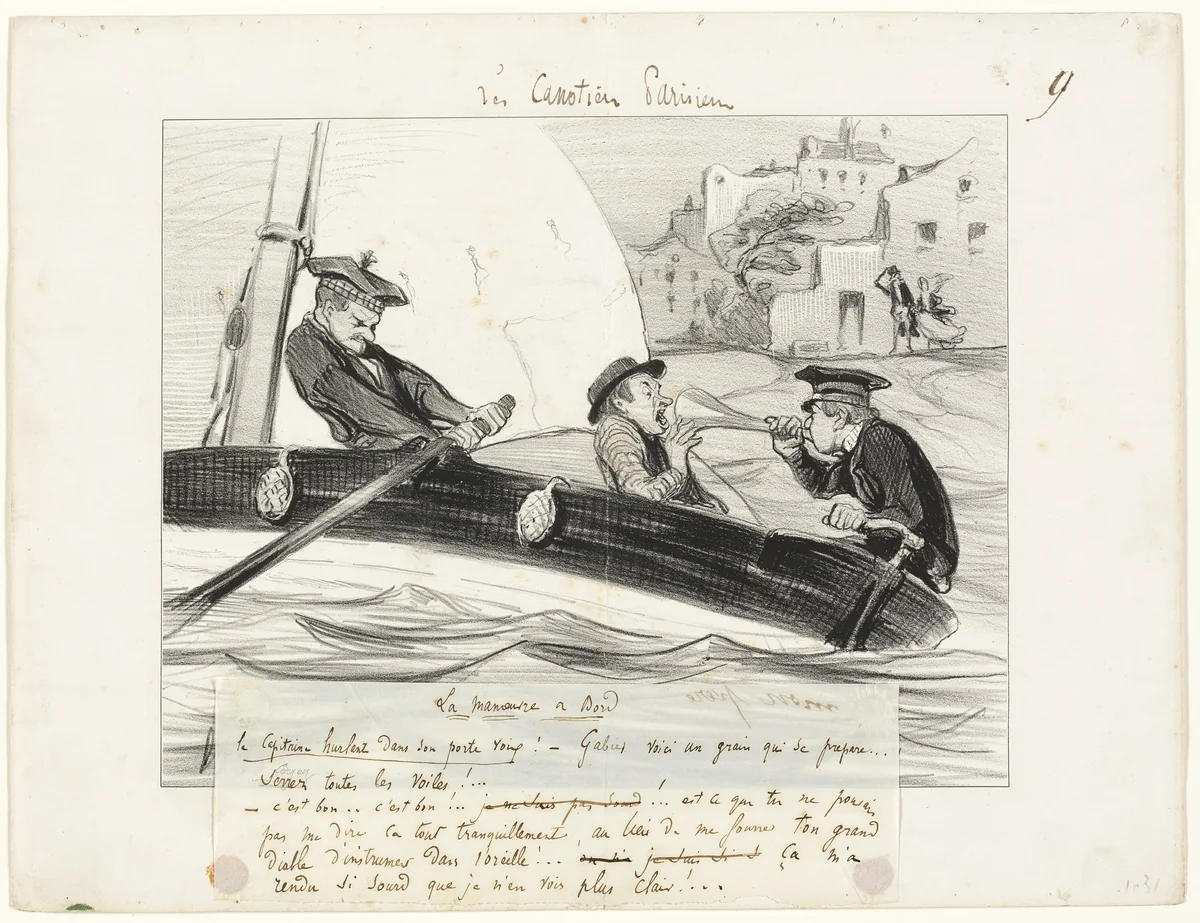 Les Canotiers Parisiens
9
La manœuvre a Bord
le Capitaine hurlant dans son porte voix ! - Gabier voici un grain qui se prépare...
Serrez toutes les voiles !...
- c'est bon .. c'est bon !.. je ne suis pas sourd !.. est ce que tu ne pouvais
pas me dire ça tout tranquillement, au lieu de me fourrer ton grand
diable d'instrument dans l'oreille !... je suis si Ça m'a
rendu si sourd que je n'en vois plus clair !...